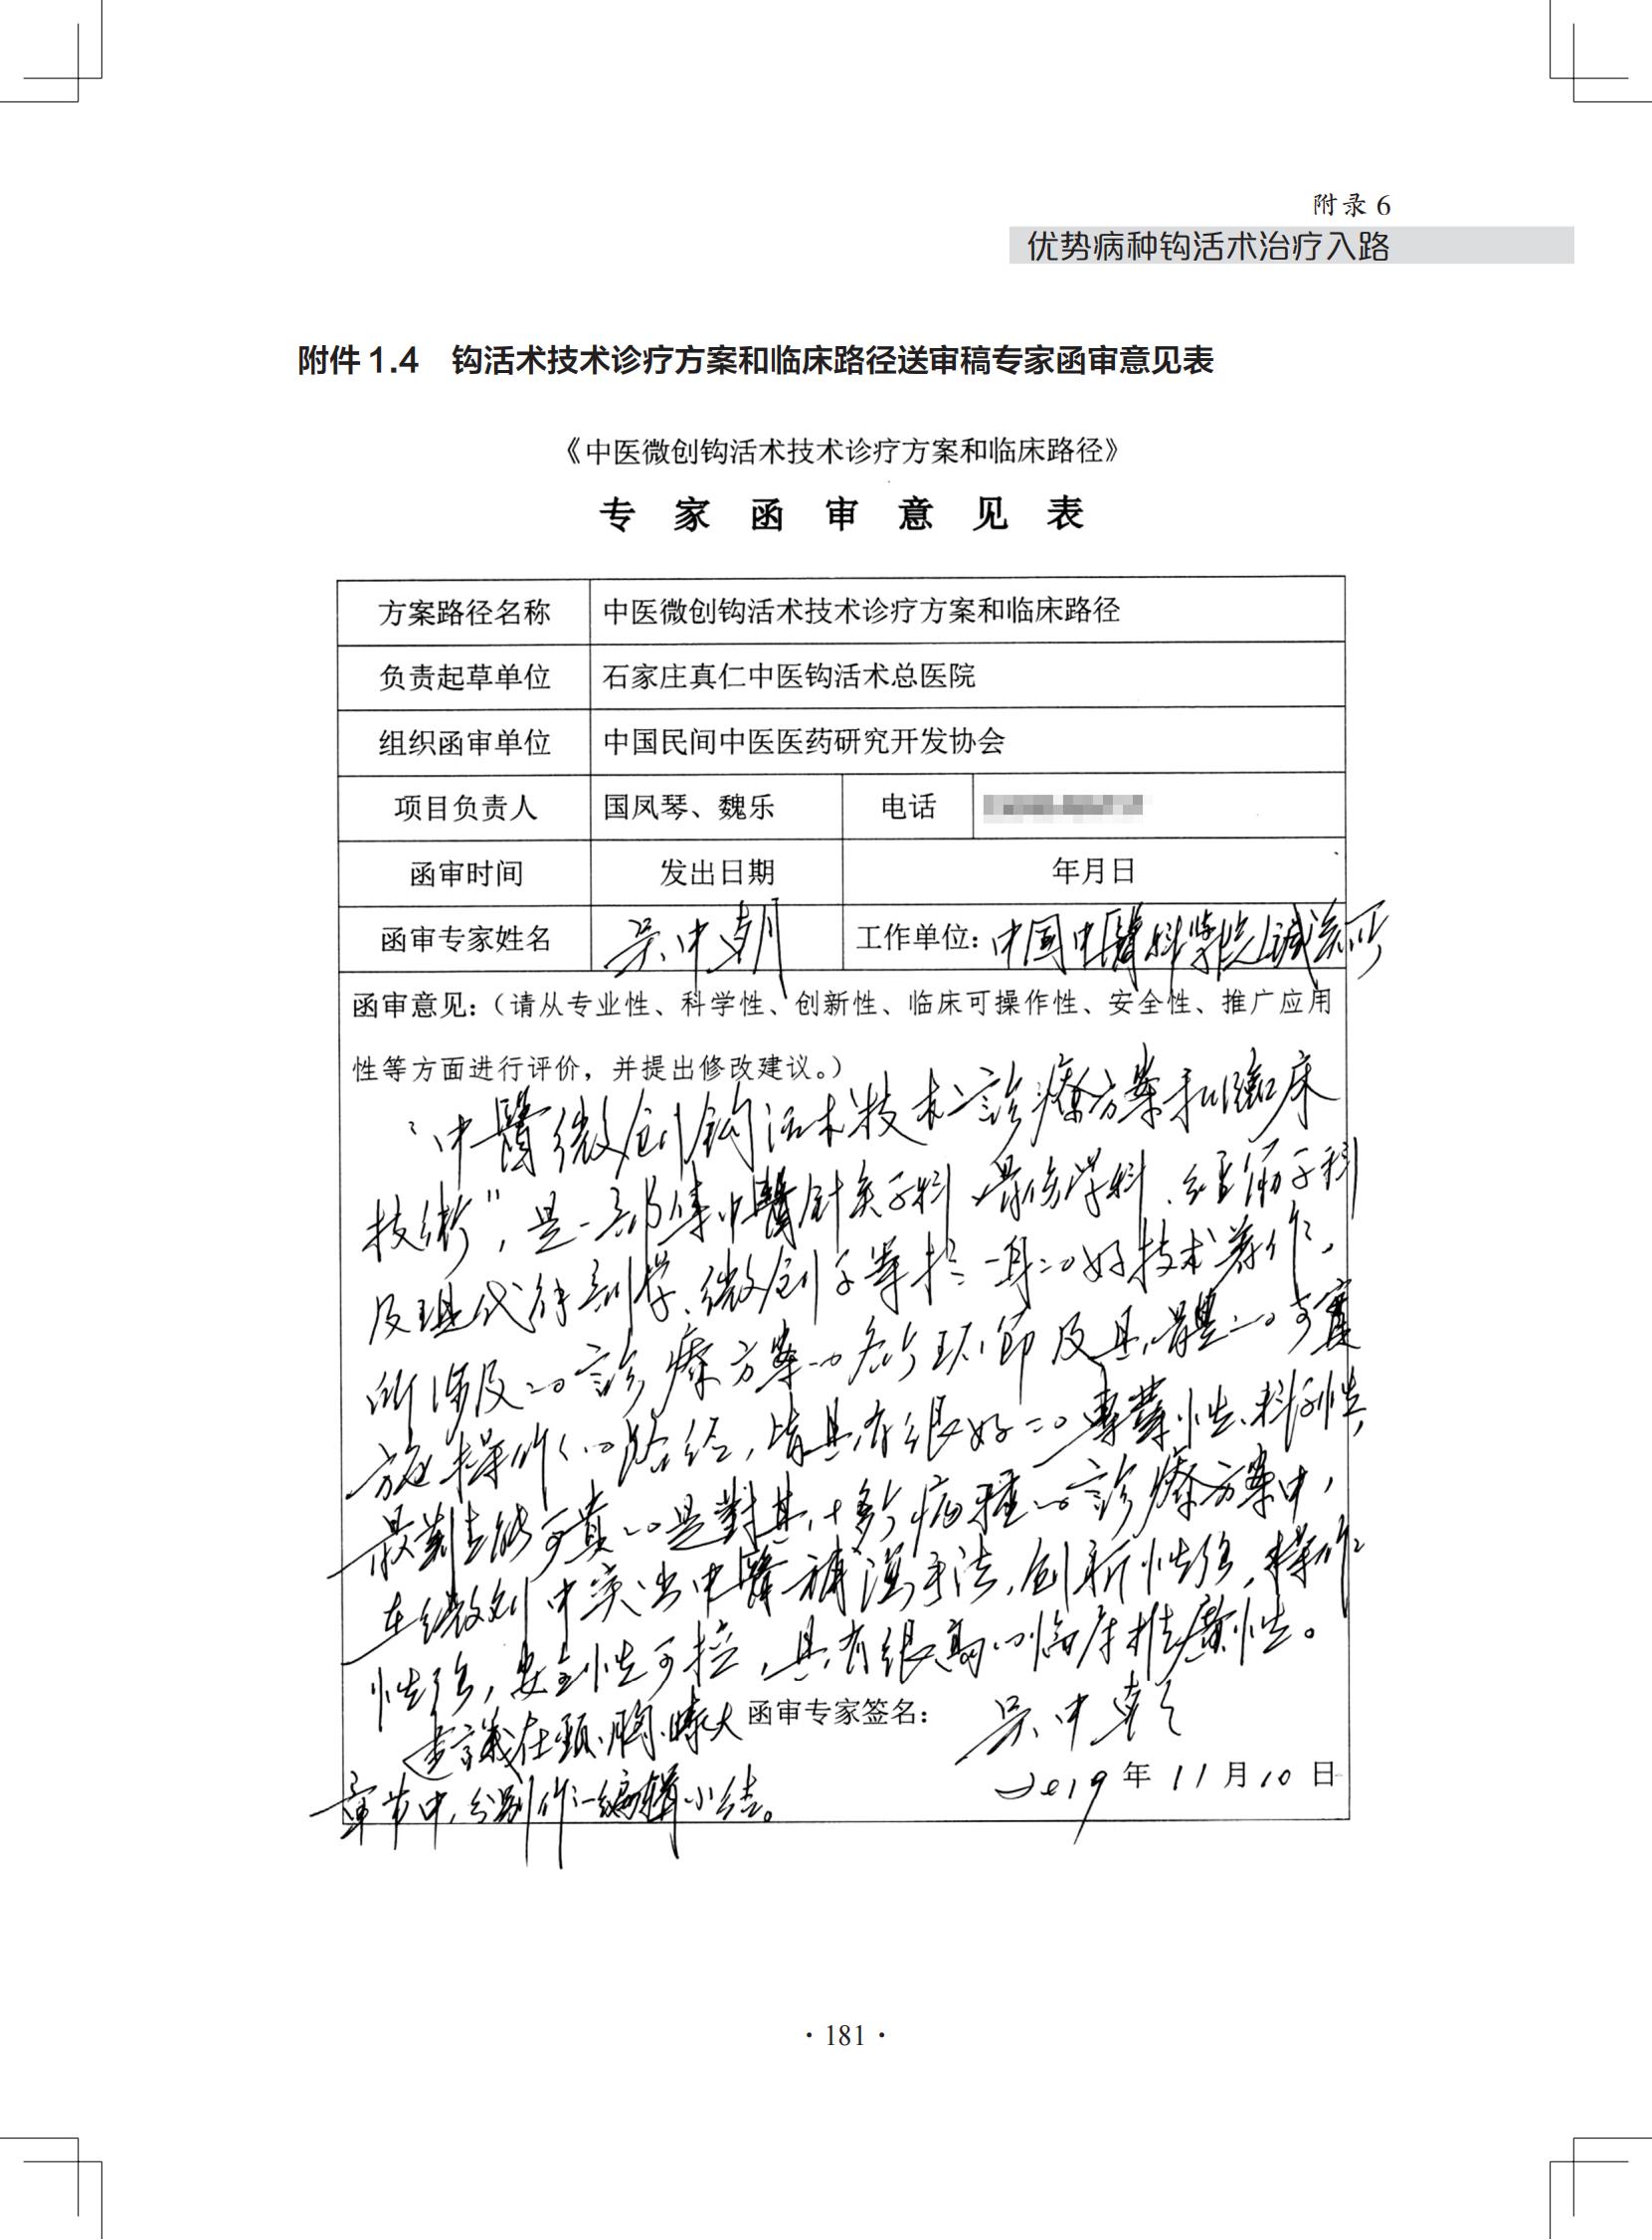 附录 6
优势病种钩活术治疗入路
附件 1.4 钩活术技术诊疗方案和临床路径送审稿专家函审意见表
《中医微创钩活术技术诊疗方案和临床路径》
专 家 函 审 意 见 表
方案路径名称 中医微创钩活术技术诊疗方案和临床路径
负责起草单位 石家庄真仁中医钩活术总医院
组织函审单位 中国民间中医医药研究开发协会
项目负责人 国凤琴、魏乐 电话
函审时间 发出日期 年月日
函审专家姓名 吴中朝 工作单位：中国中醫科学院
函审意见：（请从专业性、科学性、创新性、临床可操作性、安全性、推广应用
性等方面进行评价，并提出修改建议。）
“中醫微创钩活术技术診療方案和臨床
技術”，是一部集中醫針灸学科、骨伤学科、经筋学科
及现代解剖学、微创学等於一身的好技术著作，
所涉及的診療方案的各个环節及具體的实
施操作的路径，皆具有很好的專業性、科学性，
可貴的是對其十多个病種的診療方案中，
在微创中突出中醫補瀉手法，创新性强，操作
性强，安全性可控，具有很高的临床推廣性。
建議在頸、胸、腰大
章节中，分别作一编辑小结。
函审专家签名： 吴中朝
2019 年 11 月 10 日
· 181 ·